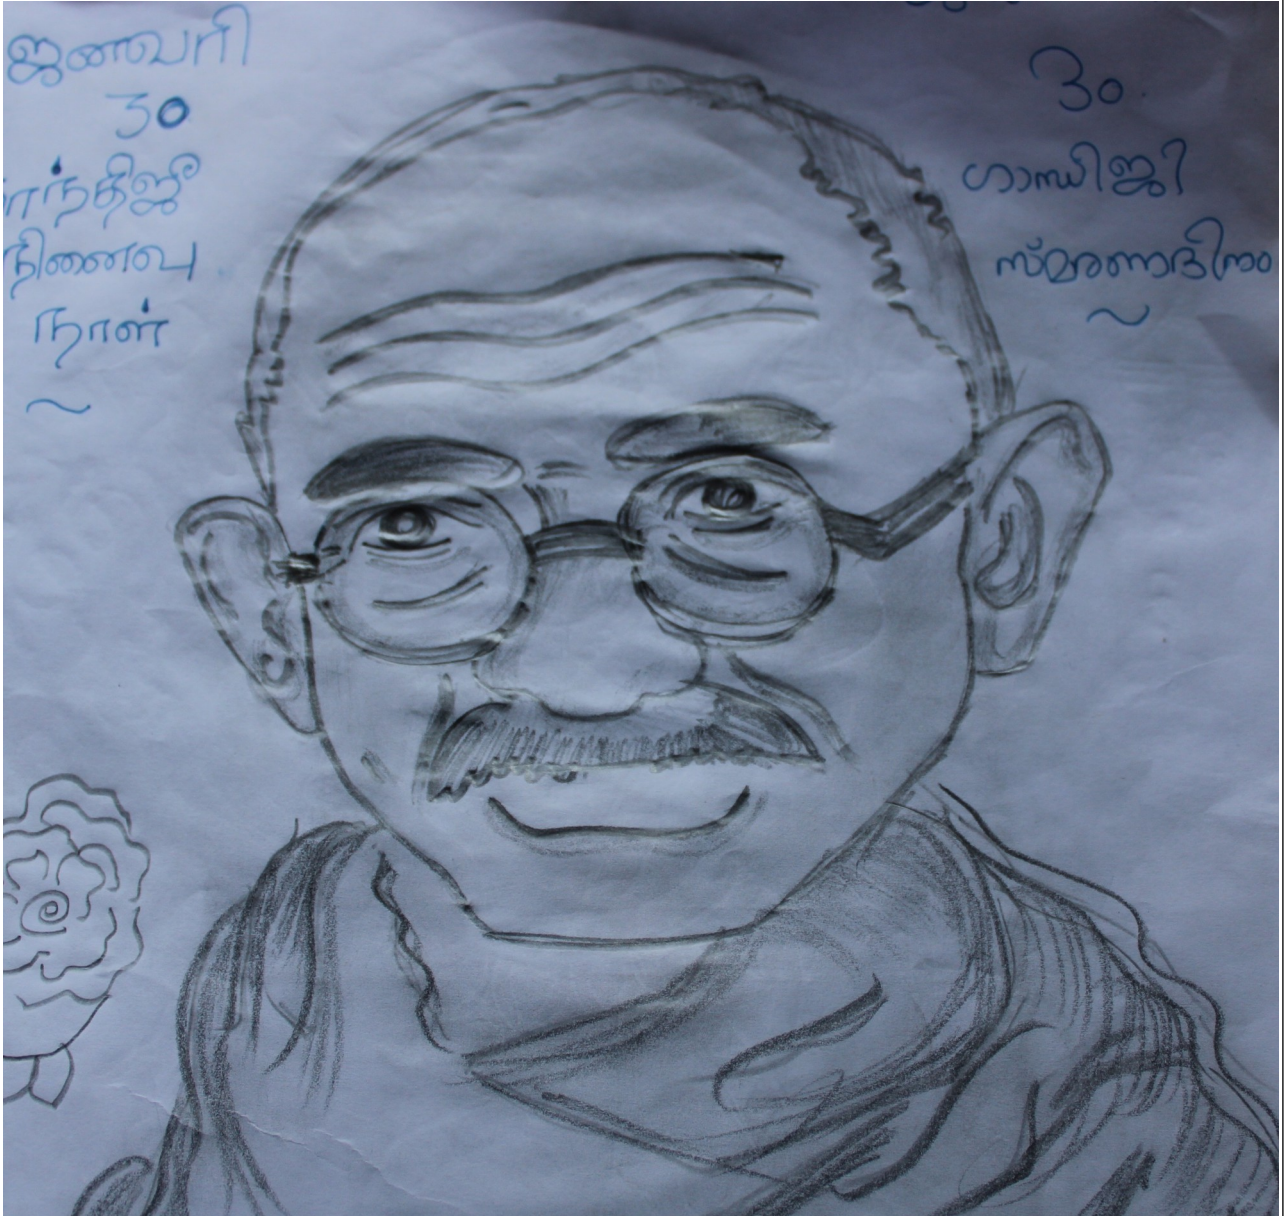 ஜனவரி
30
காந்திஜீ
நினைவு
நாள்
30
ഗാന്ധിജി
സ്മരണദിനം